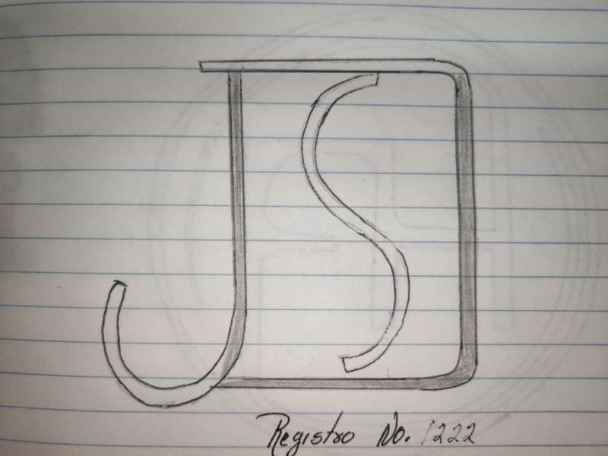 JS
Registro No. 1222